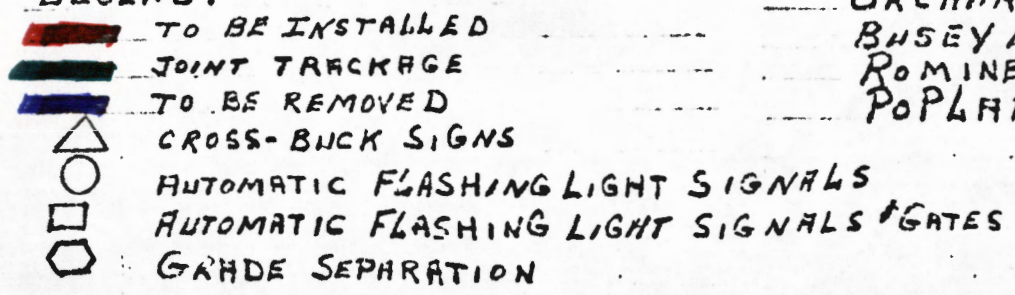 TO BE INSTALLED
BUSEY
JOINT TRACKAGE
TO BE REMOVED
CROSS-BUCK SIGNS
AUTOMATIC FLASHING LIGHT SIGNALS
AUTOMATIC FLASHING LIGHT SIGNALS & GATES
GRADE SEPARATION